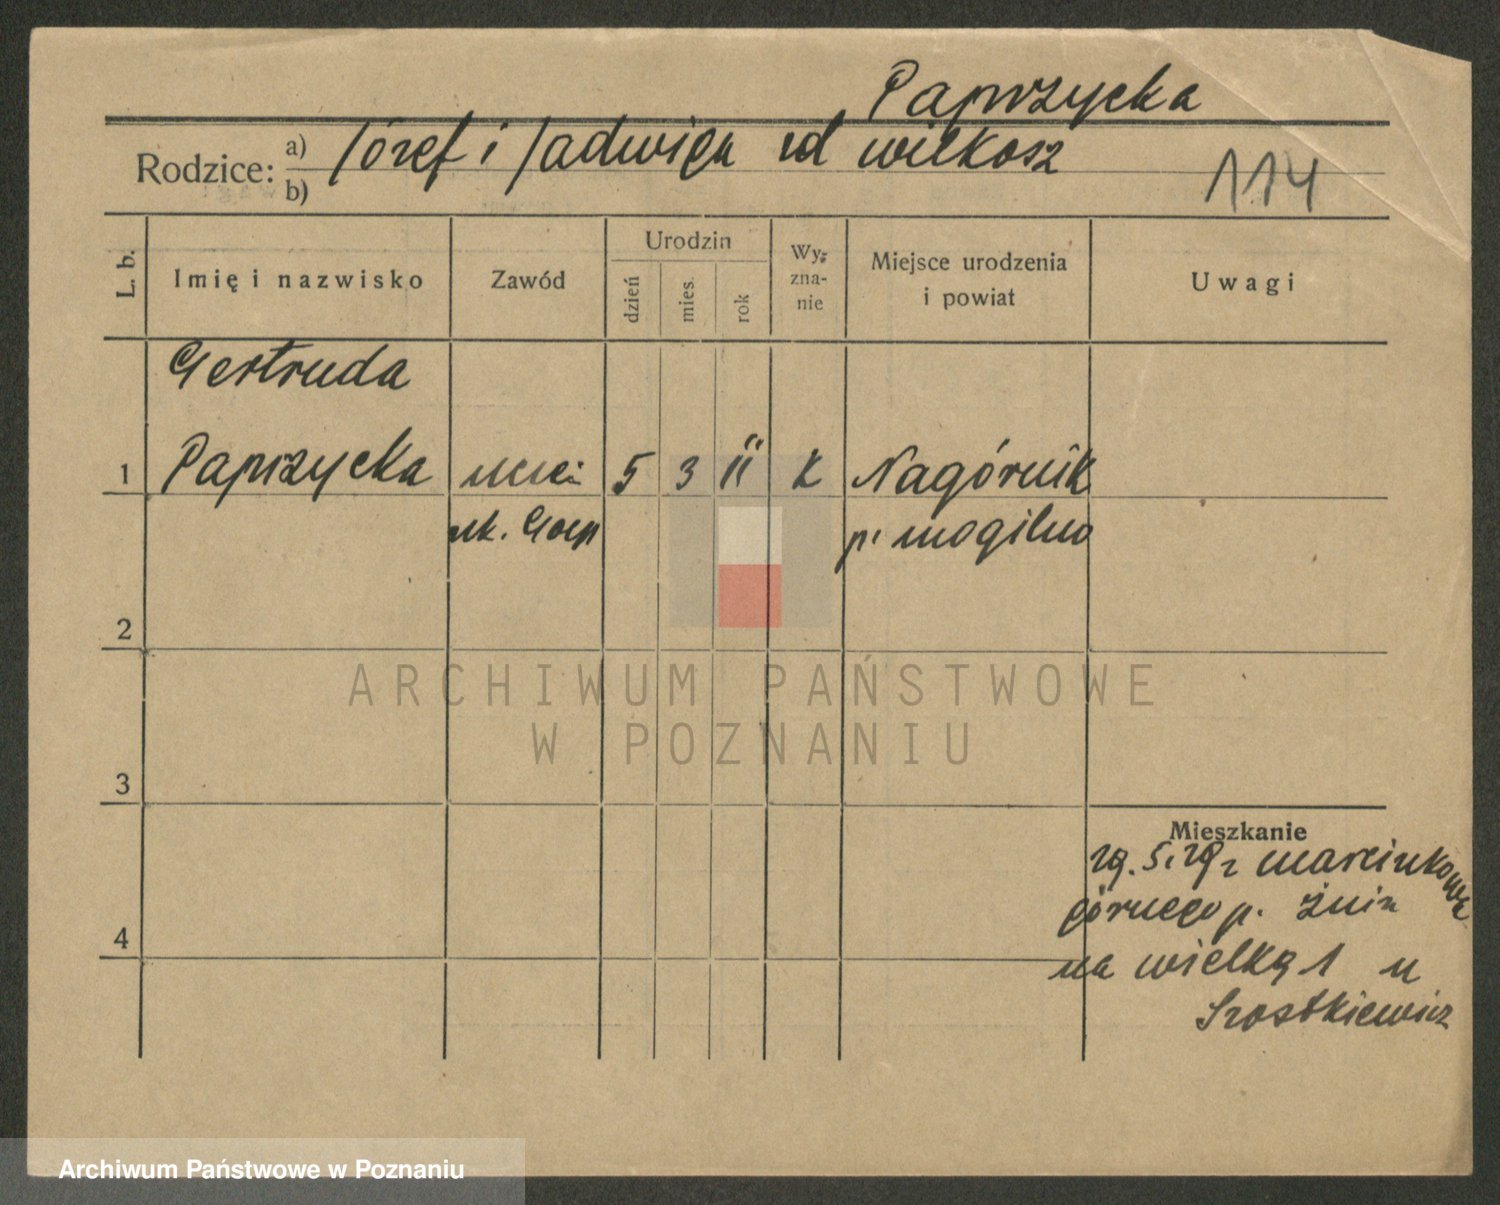 Paprzycka
Rodzice: a) b) Józef i Jadwiga zd Wilkosz
114
L. b.
Imię i nazwisko
Zawód
Urodzin
dzień
mies.
rok
Wyzna-
nie
Miejsce urodzenia
i powiat
Uwagi
Gertruda
1 Paprzycka 5 3 11 k Nagórnik
p. mogilno
2
3
4
Mieszkanie
29. 5. 29 r marcinkowa
górnego p. Żnin
na wielką 1 u
Szostkiewicz
ARCHIWUM PAŃSTWOWE
W POZNANIU
Archiwum Państwowe w Poznaniu